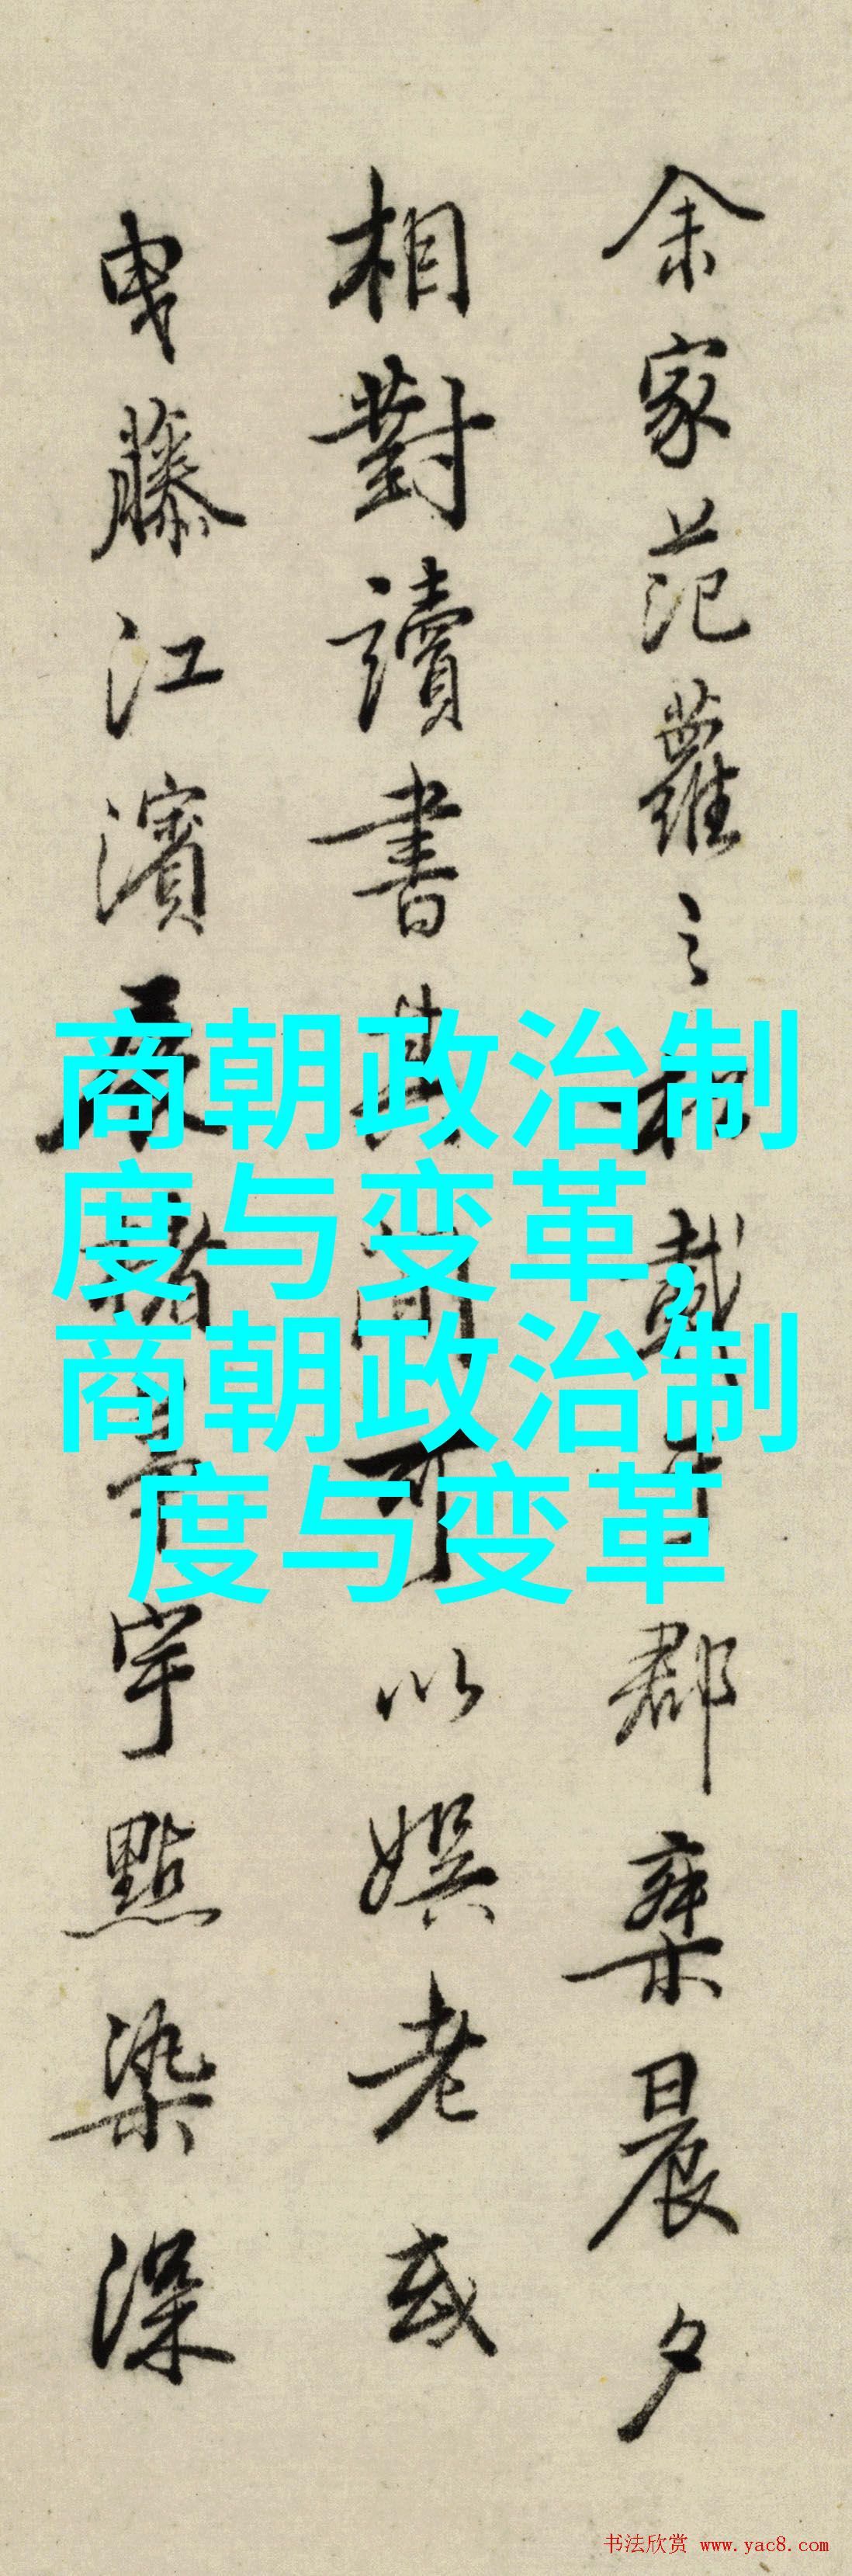 余家范蘿之
郡棄晨夕
相對讀書
可以娛老或
曳藤江濱
宇點染深
商朝政治制
度与变革,
商朝政治制
度与变革
书法欣赏 www.yac8.com